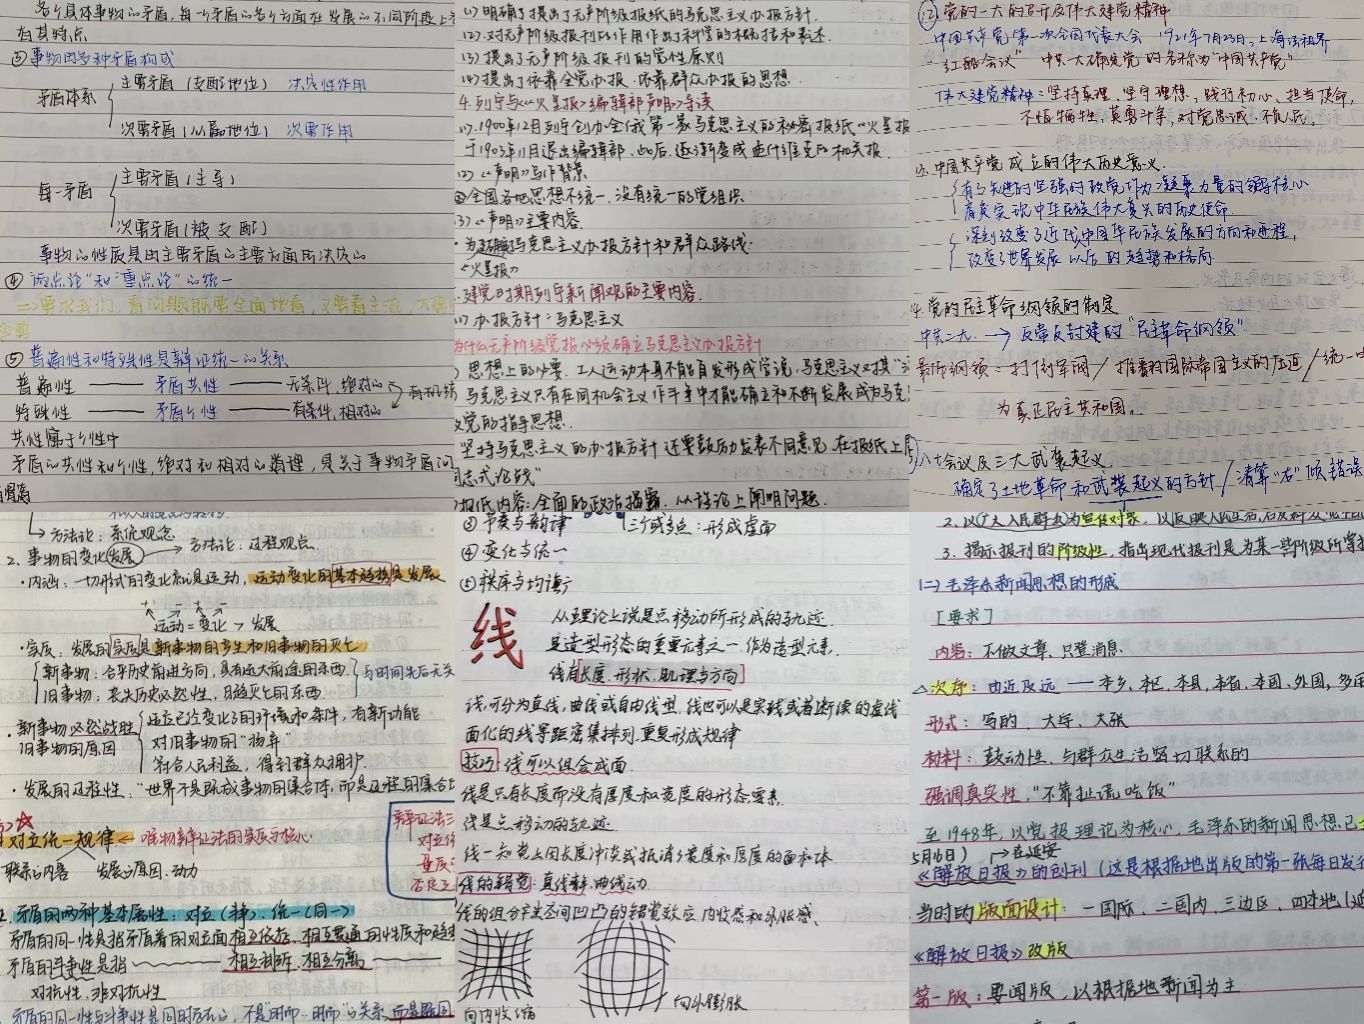 各个具体事物的矛盾,每一个矛盾的各个方面在发展的不同阶段上
有其特点
③事物由多种矛盾构成
矛盾体系
主要矛盾(支配地位) 决定性作用
次要矛盾(从属地位) 次要作用
每一矛盾
主要矛盾(主导)
次要矛盾(被支配)
事物的性质是由主要矛盾的主要方面所决定的
④"两点论"和"重点论"的统一
⇒要求我们,看问题既要全面地看,又要看主流
⑤普遍性和特殊性是辩证统一的关系
普遍性 —— 矛盾共性 —— 无条件,绝对的
特殊性 —— 矛盾个性 —— 有条件,相对的
共性寓于个性中
矛盾的共性和个性,绝对和相对的道理,是关于事物矛盾问
(1)明确了提出了无产阶级报纸的马克思主义办报方针.
(2)对无产阶级报刊的作用作出了科学的概括和表述.
(3)提出了无产阶级报刊的党性原则
(4)提出了依靠全党办报、依靠群众办报的思想.
4.列宁与《火星报》编辑部声明》导读
(1)1900年12月列宁创办全俄第一家马克思主义的秘密报纸《火星报
于1903年11月退出编辑部,此后,逐渐变成孟什维克的机关报.
(2)《声明》写作背景
全国各地思想不统一,没有统一的党组织
(3)《声明》主要内容.
马克思主义办报方针和群众路线.
《火星报》
建党时期列宁新闻观的主要内容.
(1)办报方针:马克思主义
为什么无产阶级党报必须确立马克思主义办报方针
思想上的必要,工人运动本身不能自发形成学说,马克思主义
马克思主义只有在同机会主义作斗争中才能确立和不断发展成为马克
党的指导思想.
坚持马克思主义的办报方针还要鼓励发表不同意见,在报纸上
同志式论战"
报纸内容:全面的政治揭露,从理论上阐明问题.
(2)党的一大的召开及伟大建党精神
中国共产党第一次全国代表大会 1921年7月23日,上海法租界
"红船会议" 中共一大确定党的名称为"中国共产党"
伟大建党精神:坚持真理、坚守理想,践行初心、担当使命,
不怕牺牲,英勇斗争,对党忠诚、不负人民.
3.中国共产党成立的伟大历史意义.
有了先进的坚强的政党作为凝聚力量的领导核心
肩负实现中华民族伟大复兴的历史使命
深刻改变了近代中国华民族发展的方向和进程,
改变了世界发展以后的趋势和格局
4.党的民主革命纲领的制定
中共二大. → 反帝反封建的"民主革命纲领"
最低纲领:打倒军阀/推翻国际帝国主义的压迫/统一中
为真正民主共和国.
八七会议及三大武装起义.
确定了土地革命和武装起义的方针/清算"右"倾错误
↳方法论:系统观念
2.事物的变化发展 → 方法论:过程观点
·内涵:一切形式的变化就是运动,运动变化的基本趋势是发展
运动=变化>发展
·实质:发展的实质是新事物的产生和旧事物的灭亡
新事物:合乎历史前进方向,具有远大前途的东西.
旧事物:丧失历史必然性,日趋灭亡的东西.
与时间先后无关
·新事物必然战胜
旧事物的原因
适应已经变化了的环境和条件,有新功能
对旧事物的"扬弃"
符合人民利益,得到群众拥护.
·发展的过程性:"世界不是既成事物的集合体,而是过程的集合体
对立统一规律← 唯物辩证法的实质与核心
联系的内容 发展的原因、动力
辩证法三
对立统
量质
否定
1.矛盾的两种基本属性:对立(斗争)、统一(同一)
矛盾的同一性是指矛盾着的对立面相互依存,相互贯通的性质和趋势
矛盾的斗争性是指 相互排斥、相互分离
对抗性,非对抗性
③节奏与韵律
三个或多点:形成虚面
④变化与统一
⑤秩序与均衡
线
从理论上说是点移动所形成的轨迹.
是造型形态的重要元素之一,作为造型元素,
线有长度、形状、肌理与方向
线可分为直线,曲线或自由线型,线也可以是实线或者断续的虚线
面化的线等距密集排列,重复形成规律
技巧:线可以组合成面.
线是只有长度而没有厚度和宽度的形态要素.
线是点移动的轨迹.
线的错觉:直线静、曲线动.
线的组合产生空间凹凸的错觉效应,内收感和外胀感.
向内收缩
向外膨胀
2.以广大人民群众为宣传对象,
3.揭示报刊的阶级性,指出现代报刊是为某一些阶级所掌握
(二)毛泽东新闻思想的形成
[要求]
内容:不做文章,只登消息
次序:由近及远 —— 本乡、本区、本县、本省、本国、外国,
形式:写的、大字、大张
材料:鼓动性、与群众生活紧切联系的
强调真实性,"不靠扯谎吃饭"
至1948年,以党报理论为核心,毛泽东的新闻思想已
5月16日) ↱在延安
《解放日报》的创刊(这是根据地出版的第一张每日发行
当时的版面设计:一国际、二国内、三边区、四本地(延
《解放日报》改版
第一版:要闻版,以根据地新闻为主